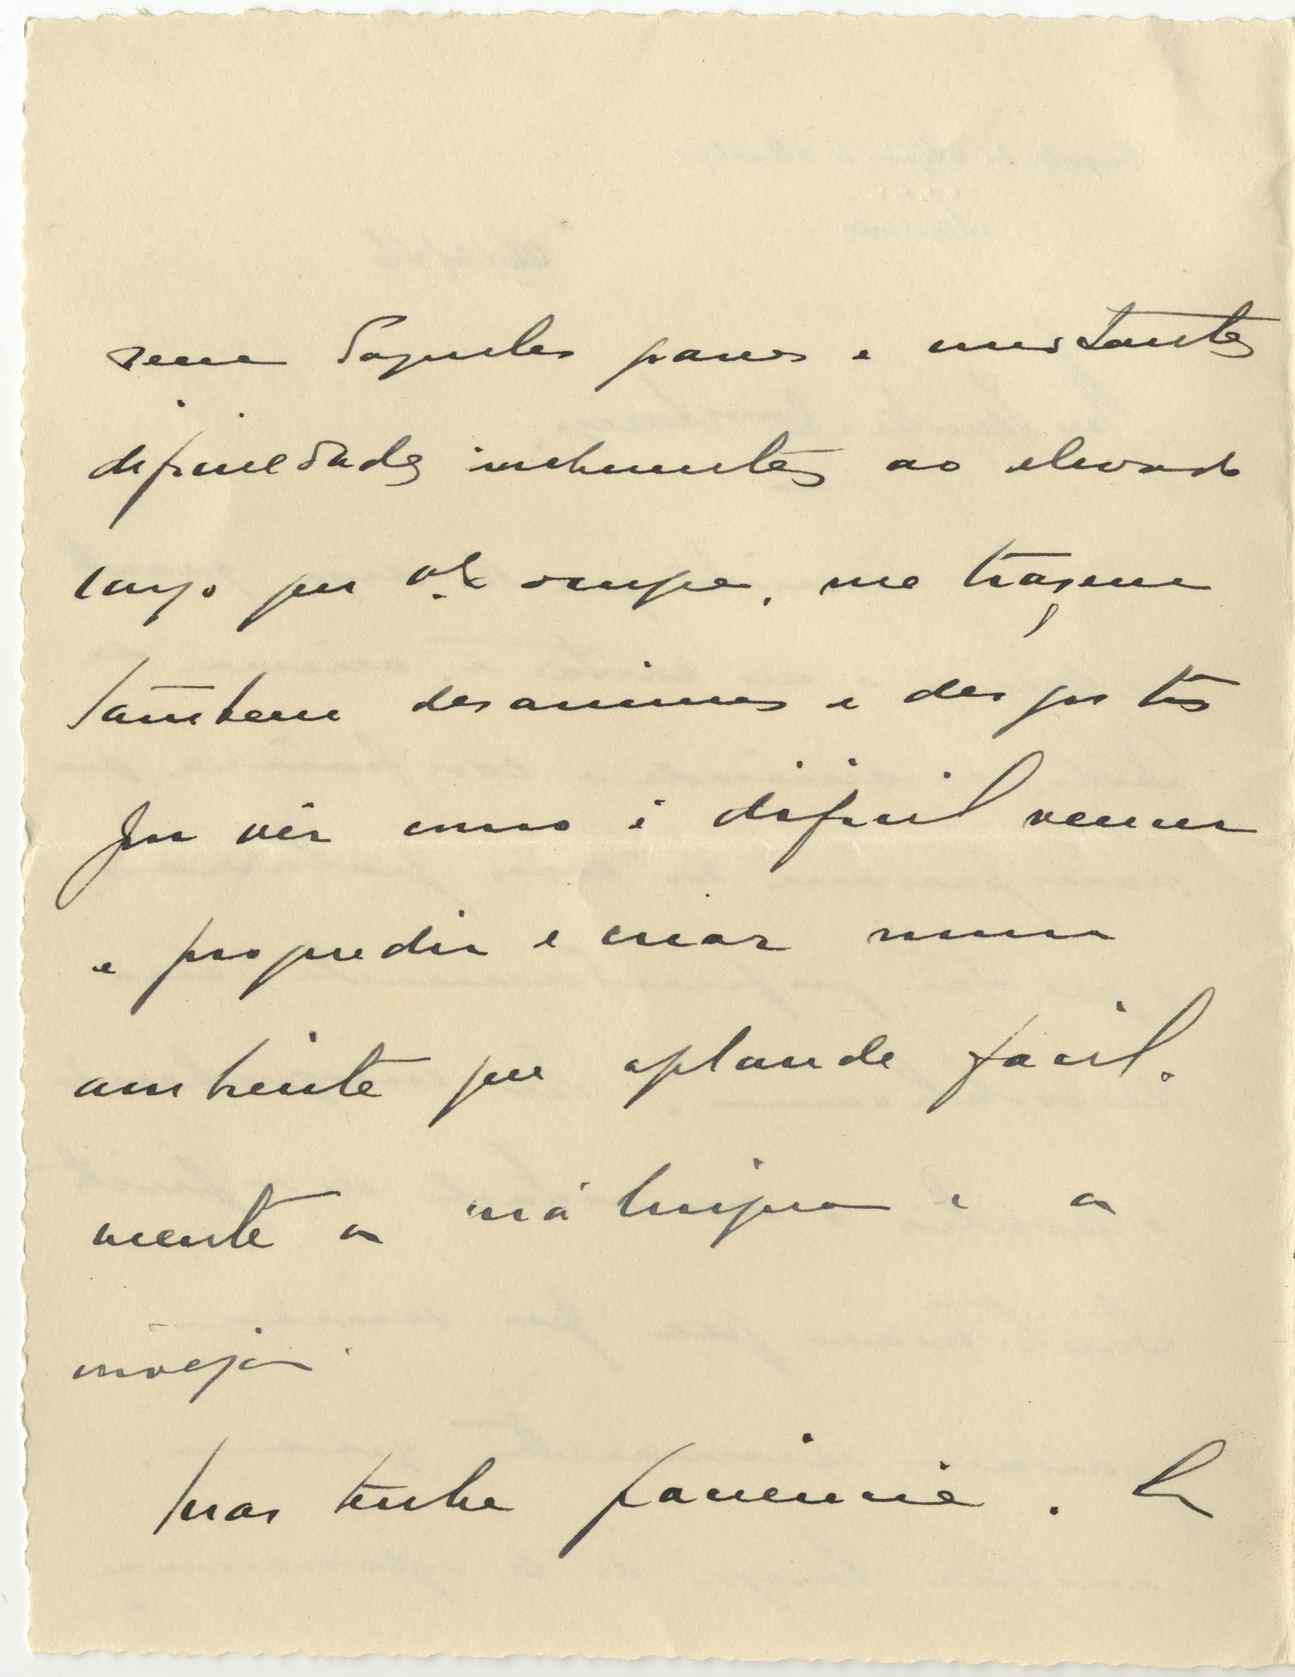 rem daqueles parvos e constantes
dificuldades inherentes ao elevado
cargo que V. Exª ocupa, me trazem
tambem desanimos e desgostos
por vêr como é dificil vencer
e progredir e criar num
ambiente que aplaude facil-
mente a má lingua e a
inveja.
Mas tenha paciencia.